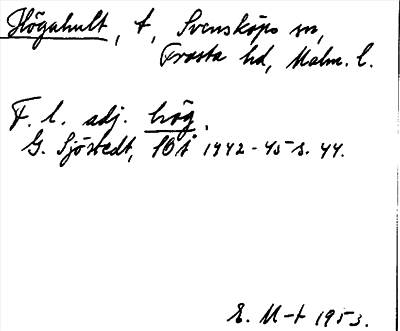 Högahult, t, Svensköps sn,
Frosta hd, Malm. l.
F. l. adj. hög.
G. Sjöstedt, SOÅ 1942-45 s. 44.
E. M-t 1953.